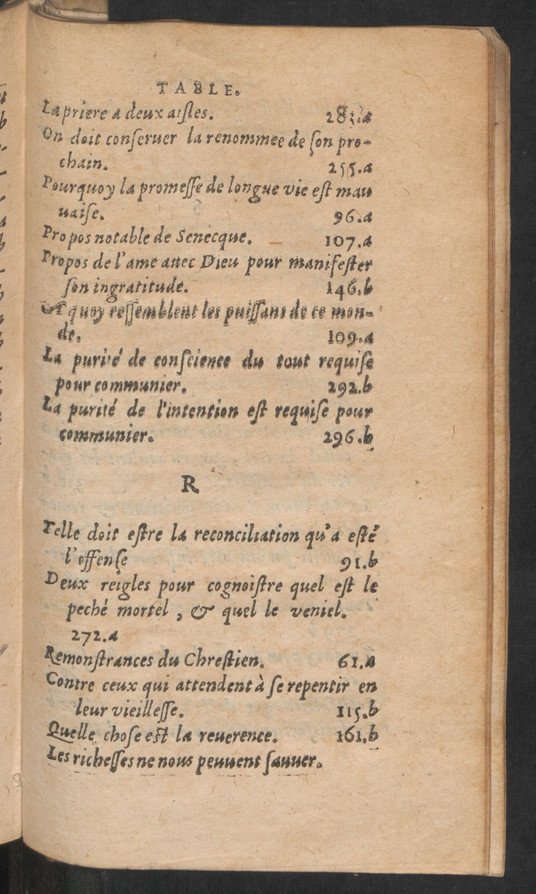 TABLE.
La priere a deux aisles. 285.a
On doit conseruer la renommee de son pro-
chain. 255.a
Pourquoy la promesse de longue vie est mau
uaise. 96.a
Propos notable de Senecque. 107.a
Propos de l'ame auec Dieu pour manifester
son ingratitude. 146.b
A quoy ressemblent les puissans de ce mon-
de. 109.a
La purité de conscience du tout requise
pour communier. 292.b
La purité de l'intention est requise pour
communier. 296.b
R
Telle doit estre la reconciliation qu'a esté
l'offense 91.b
Deux reigles pour cognoistre quel est le
peché mortel, & quel le veniel.
272.a
Remonstrances du Chrestien. 61.a
Contre ceux qui attendent à se repentir en
leur vieillesse. 115.b
Quelle chose est la reuerence. 161.b
Les richesses ne nous peuuent sauuer.